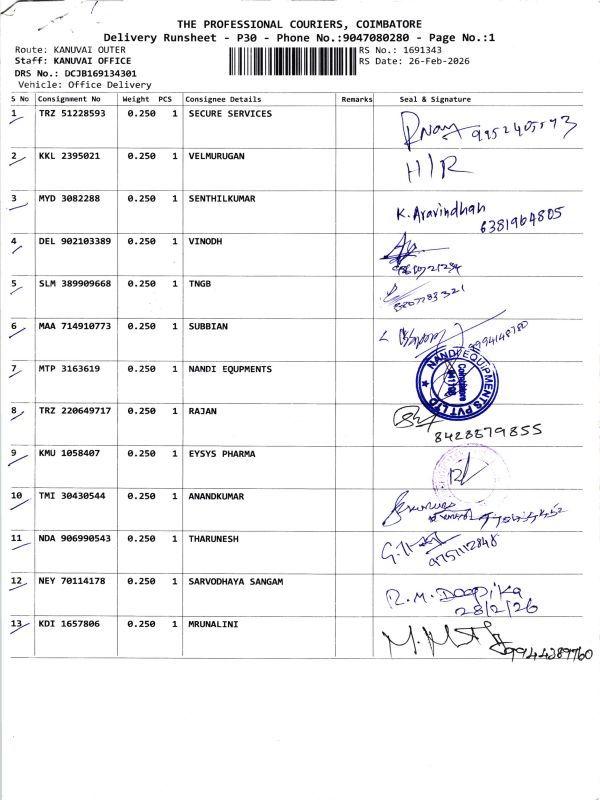 THE PROFESSIONAL COURIERS, COIMBATORE
Delivery Runsheet - P30 - Phone No.:9047080280 - Page No.:1
Route: KANUVAI OUTER
RS No.: 1691343
Staff: KANUVAI OFFICE
RS Date: 26-Feb-2026
DRS No.: DCJB169134301
Vehicle: Office Delivery
S No Consignment No Weight PCS Consignee Details Remarks Seal & Signature
1 TRZ 51228593 0.250 1 SECURE SERVICES
2 KKL 2395021 0.250 1 VELMURUGAN H/R
3 MYD 3082288 0.250 1 SENTHILKUMAR K. Aravindhan
6381964805
4 DEL 902103389 0.250 1 VINODH
5 SLM 389909668 0.250 1 TNGB
6 MAA 714910773 0.250 1 SUBBIAN 9994148780
7 MTP 3163619 0.250 1 NANDI EQUPMENTS NANDI EQUIPMENTS PVT LTD
Coimbatore
8 TRZ 220649717 0.250 1 RAJAN
8428879855
9 KMU 1058407 0.250 1 EYSYS PHARMA
10 TMI 30430544 0.250 1 ANANDKUMAR
11 NDA 906990543 0.250 1 THARUNESH
9751112848
12 NEY 70114178 0.250 1 SARVODHAYA SANGAM R.M. Deepika
28/2/26
13 KDI 1657806 0.250 1 MRUNALINI
9944289760